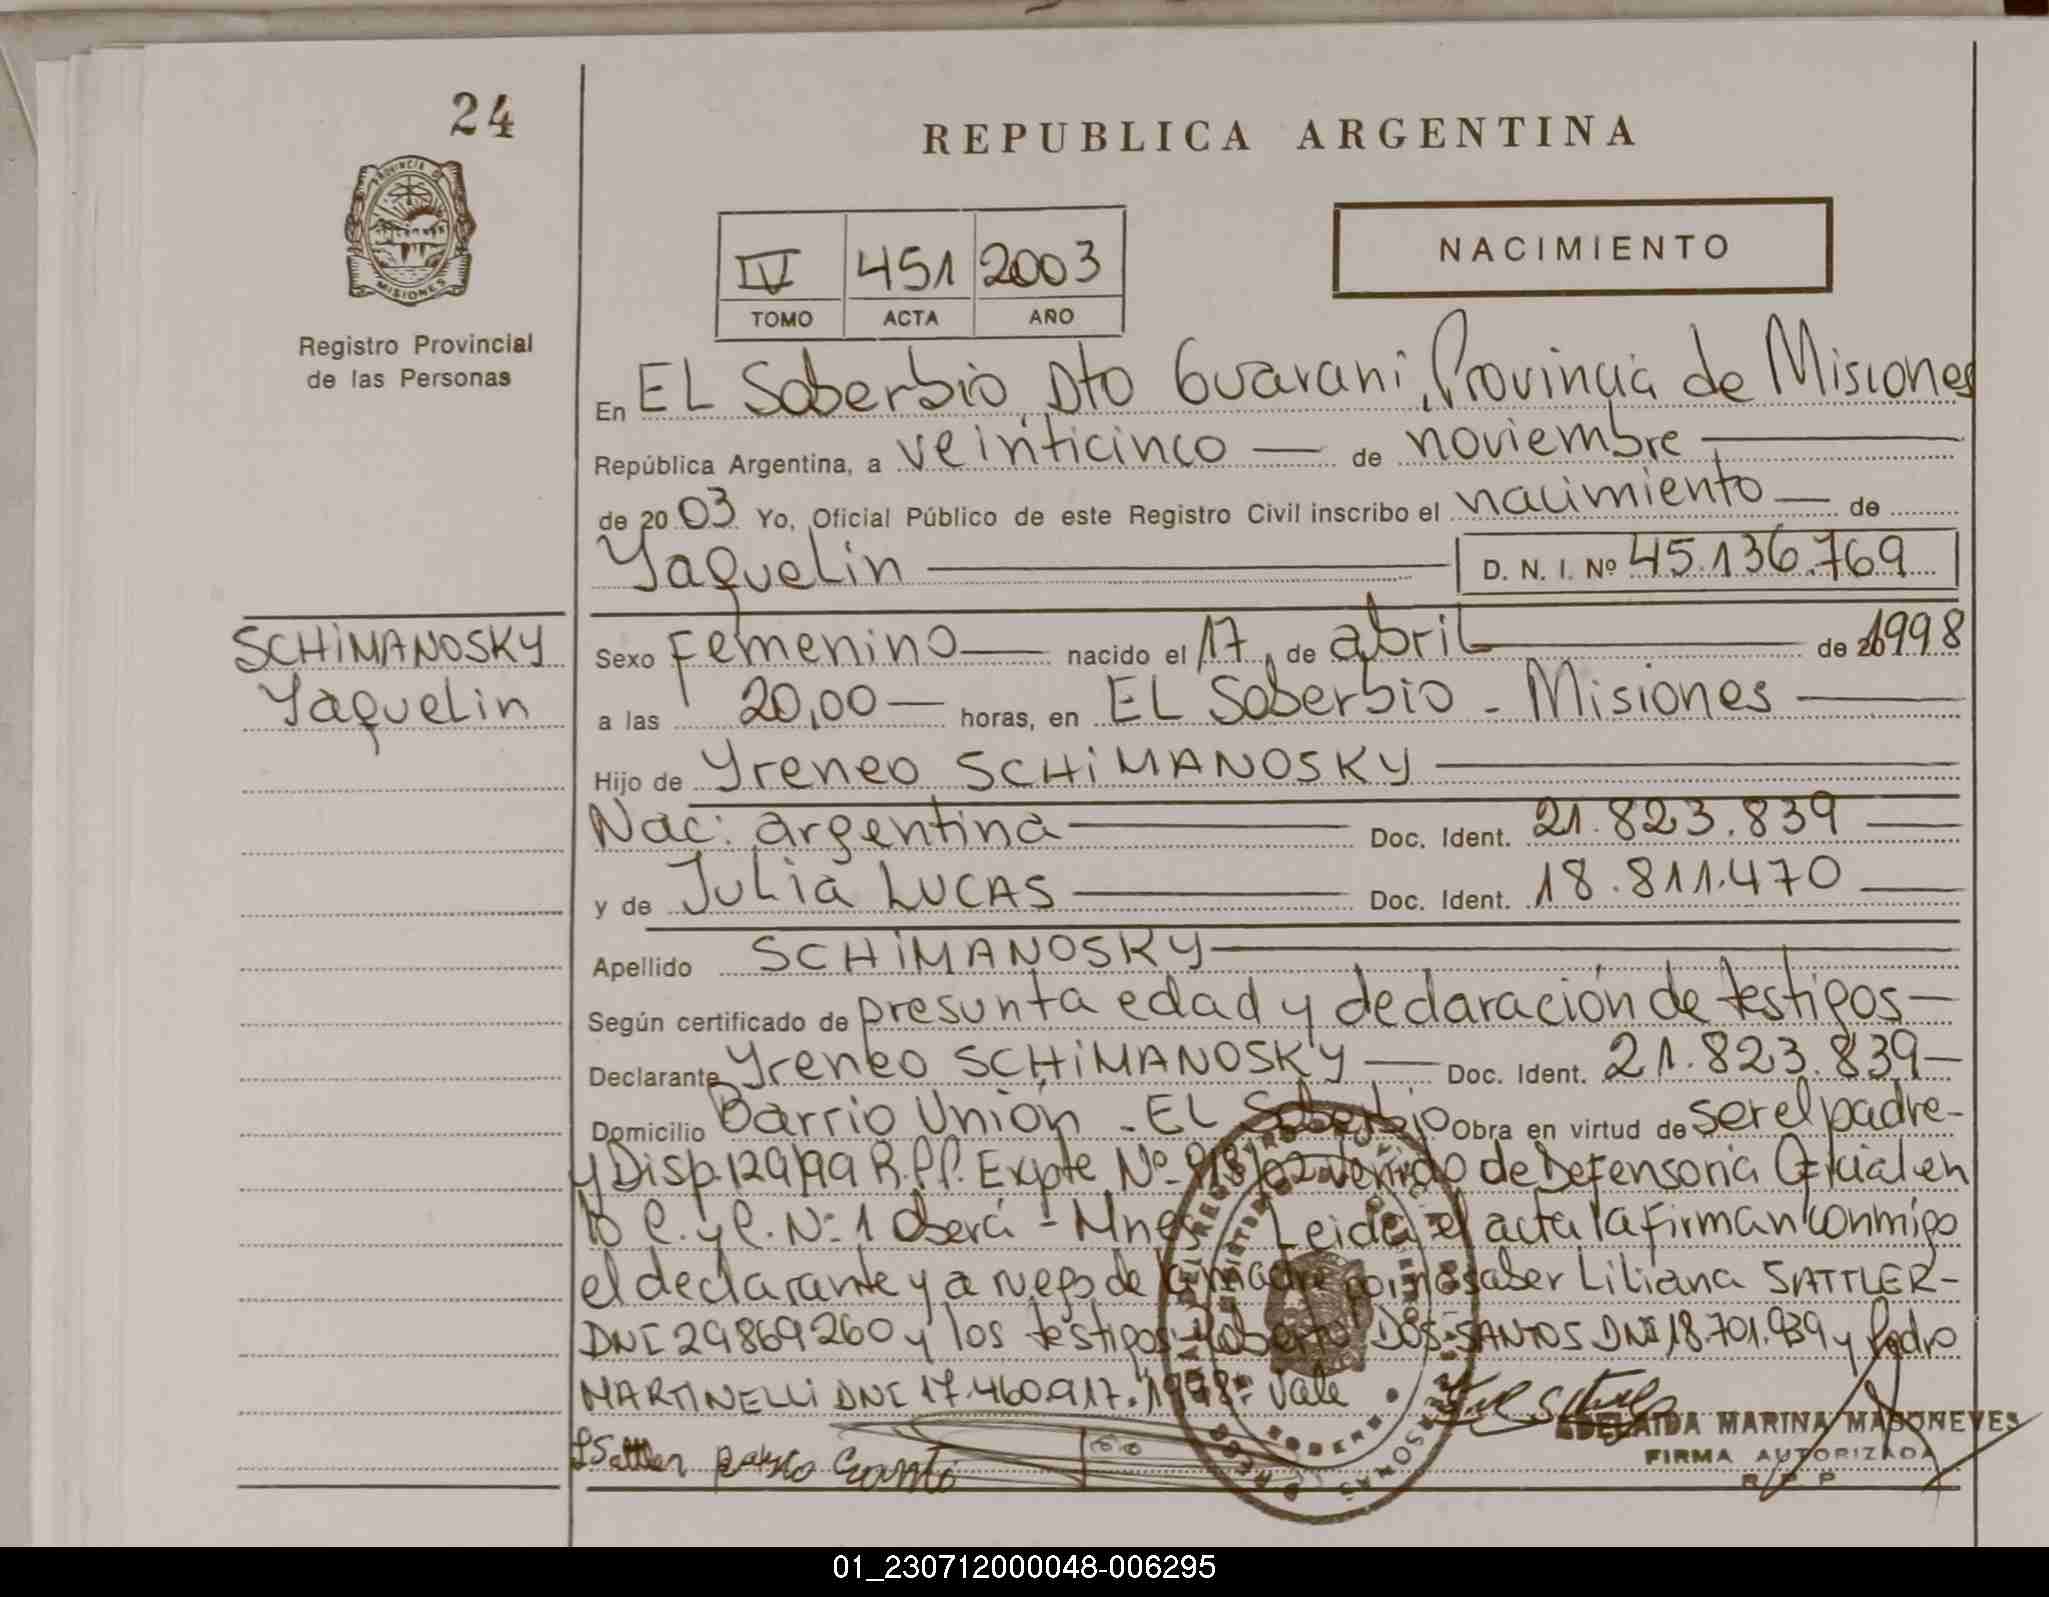 24
REPUBLICA ARGENTINA
PROVINCIA DE
MISIONES
Registro Provincial
de las Personas
IV 451 2003
TOMO ACTA AÑO
NACIMIENTO
En EL Soberbio, Dto Guaraní, Provincia de Misiones
República Argentina, a veinticinco — de noviembre —
de 2003 Yo, Oficial Público de este Registro Civil inscribo el nacimiento — de
Yaquelin — D. N. I. Nº 45.136.769
SCHIMANOSKY
Yaquelin
Sexo Femenino — nacido el 17 de abril — de 1998
a las 20,00 — horas, en EL Soberbio - Misiones —
Hijo de Yreneo SCHIMANOSKY —
Nac: argentina — Doc. Ident. 21.823.839 —
y de Julia LUCAS — Doc. Ident. 18.811.470 —
Apellido SCHIMANOSKY —
Según certificado de presunta edad y declaración de testigos —
Declarante Yreneo SCHIMANOSKY — Doc. Ident. 21.823.839 —
Domicilio Barrio Unión - EL Soberbio Obra en virtud de ser el padre -
y Disp. 129/99 R.P.P. Expte Nº de Defensoria Oficial en
lo C. y C. Nº 1 Oberá - Mnes. Leida el acta la firman conmigo
el declarante y a ruego de la madre por no saber Liliana SATTLER -
DNI 29869260 y los testigos: Roberto DOS SANTOS DNI 18.701.939 y Pedro
MARTINELLI DNI 17.460.917. 1998: Vale
LSattler
ADELAIDA MARINA MASONEVES
FIRMA AUTORIZADA
R. P. P.
01_230712000048-006295